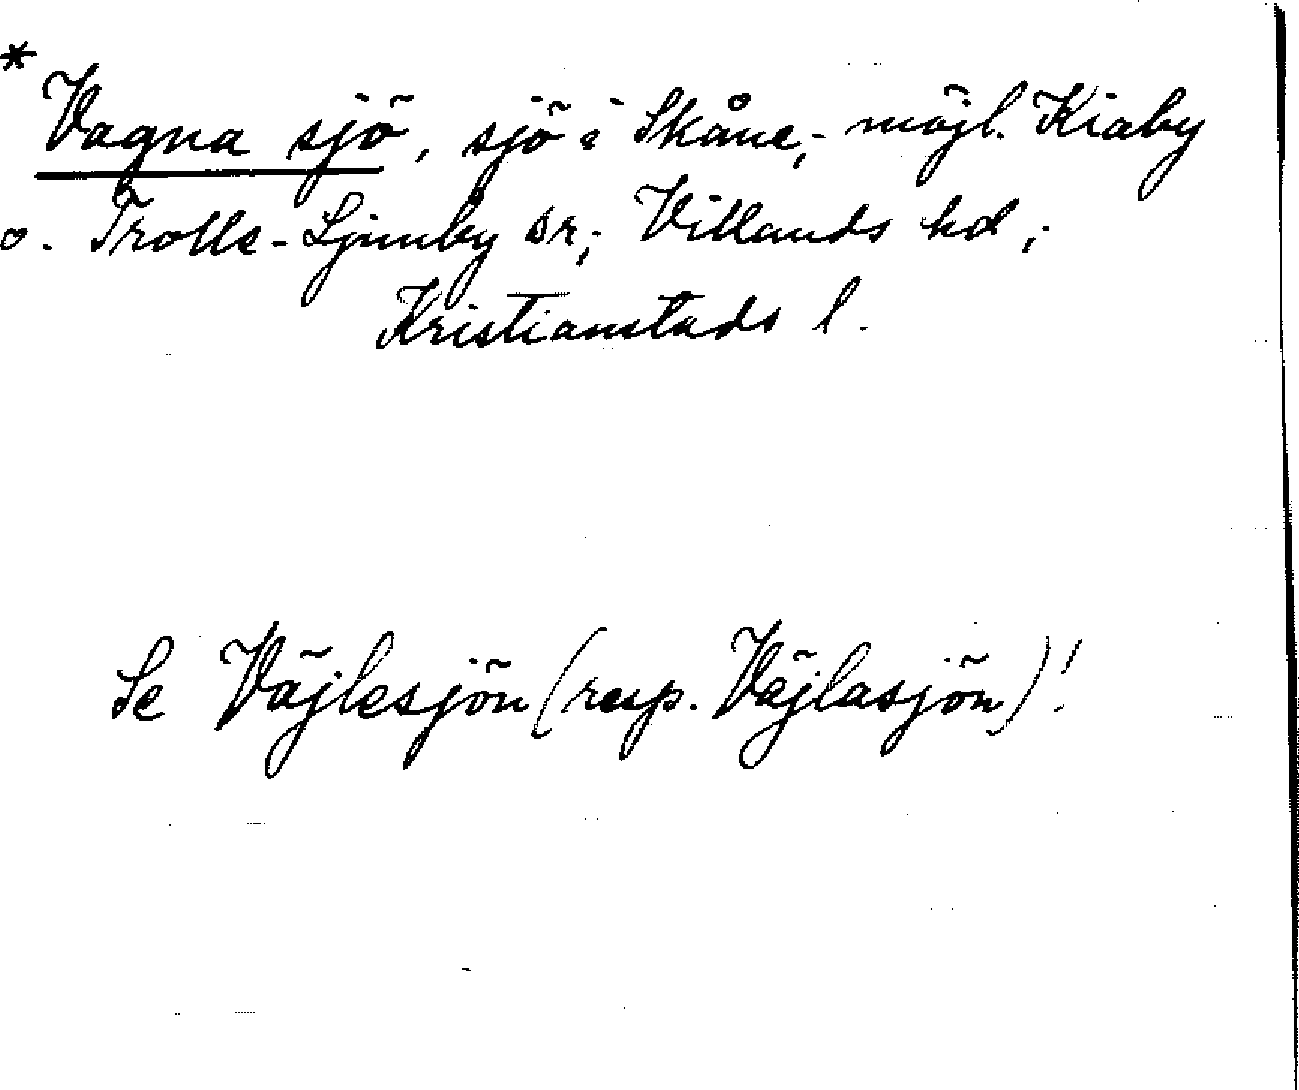 * Vagna sjö, sjö i Skåne, möjl. Kiaby
o. Trolle-Ljunby sr, Villands hd,
Kristianstads l.
Se Väjlesjön (resp. Väjlasjön)!